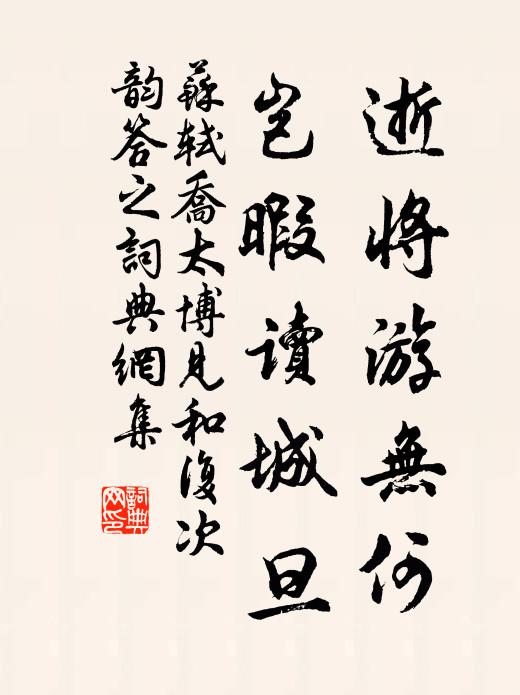 逝將游無何
豈暇讀城旦
蘇軾喬太博見和復次
韵答之詞典網集
詞典
网印